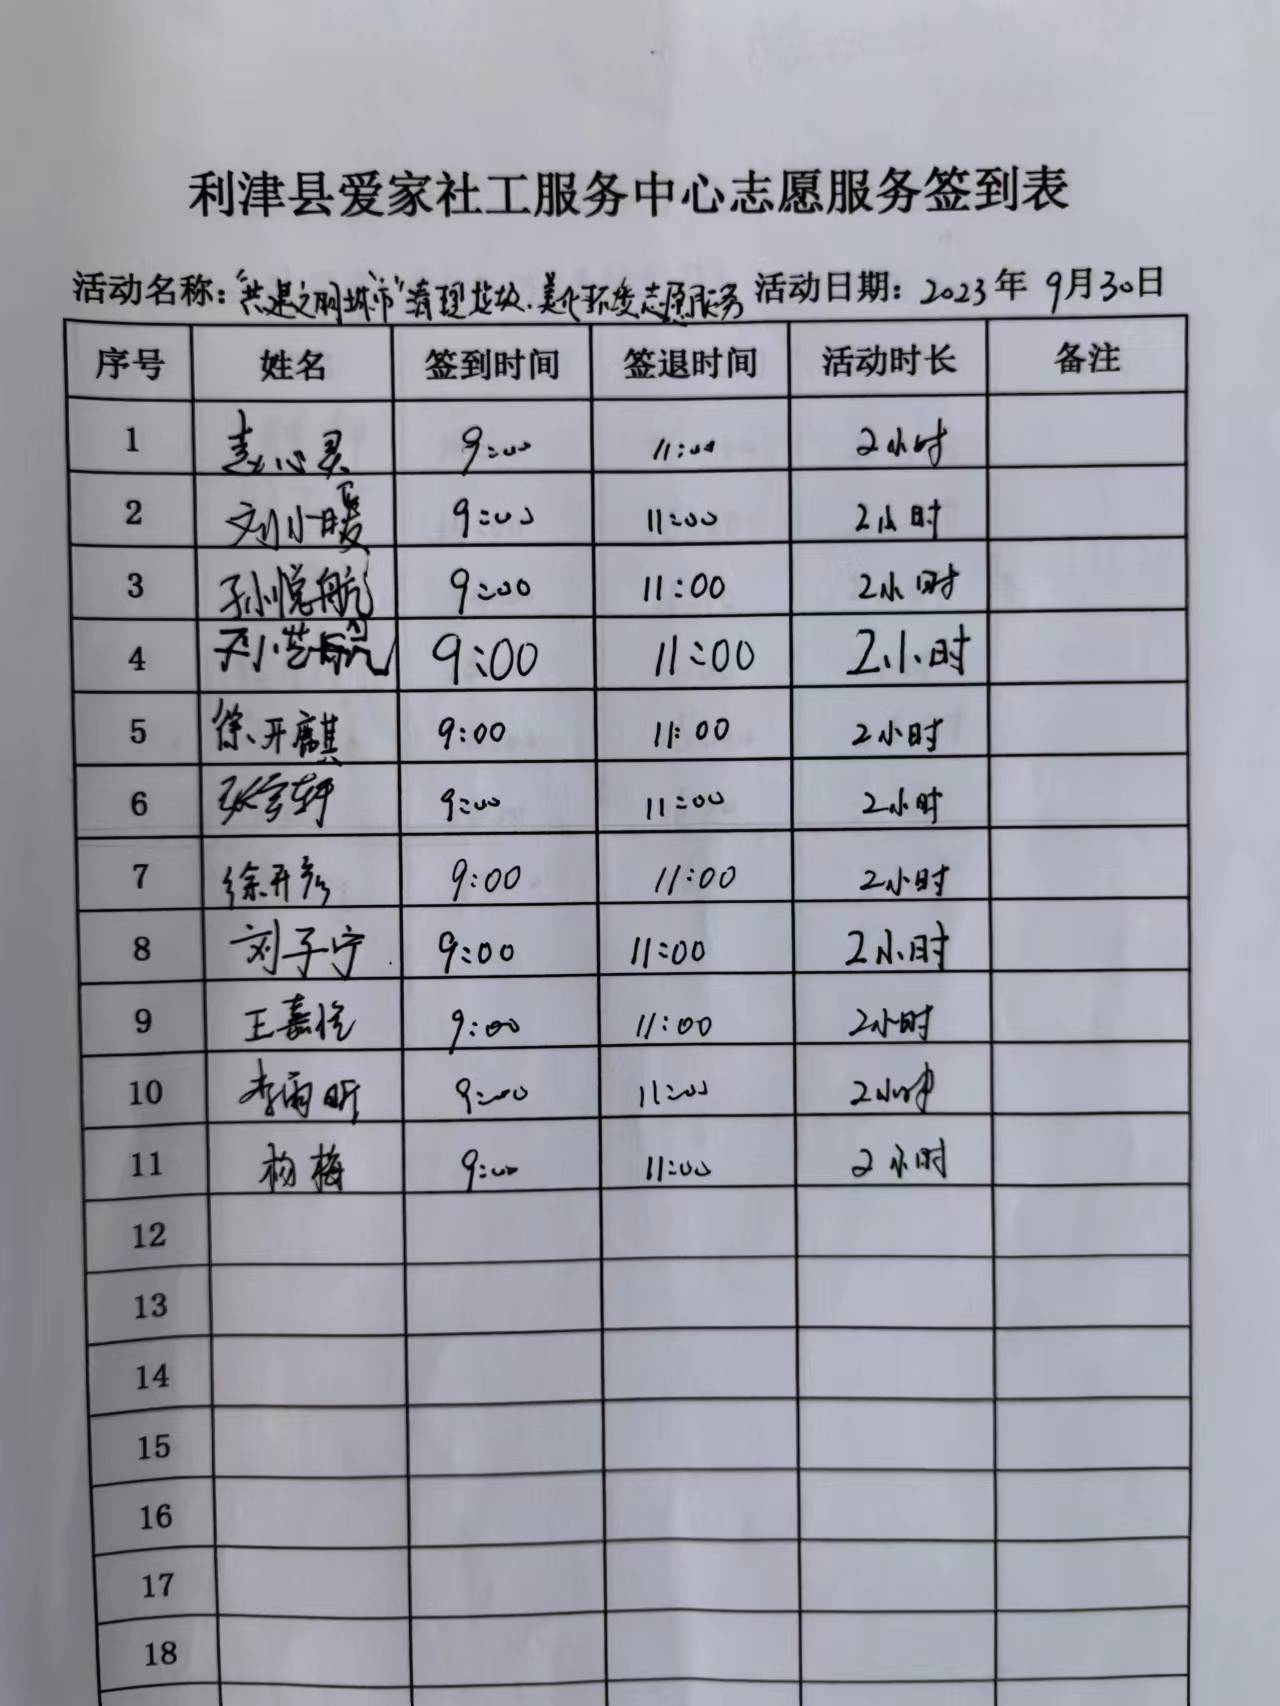 利津县爱家社工服务中心志愿服务签到表
活动名称："共建文明城市"清理垃圾、美化环境志愿服务 活动日期：2023年 9月30日
序号 姓名 签到时间 签退时间 活动时长 备注
1 9:00 11:00 2小时
2 刘小暖 9:00 11:00 2小时
3 孙悦航 9:00 11:00 2小时
4 9:00 11:00 2小时
5 徐开麒 9:00 11:00 2小时
6 张宇轩 9:00 11:00 2小时
7 徐开彦 9:00 11:00 2小时
8 刘子宁 9:00 11:00 2小时
9 王嘉悦 9:00 11:00 2小时
10 李雨昕 9:00 11:00 2小时
11 杨梅 9:00 11:00 2小时
12
13
14
15
16
17
18